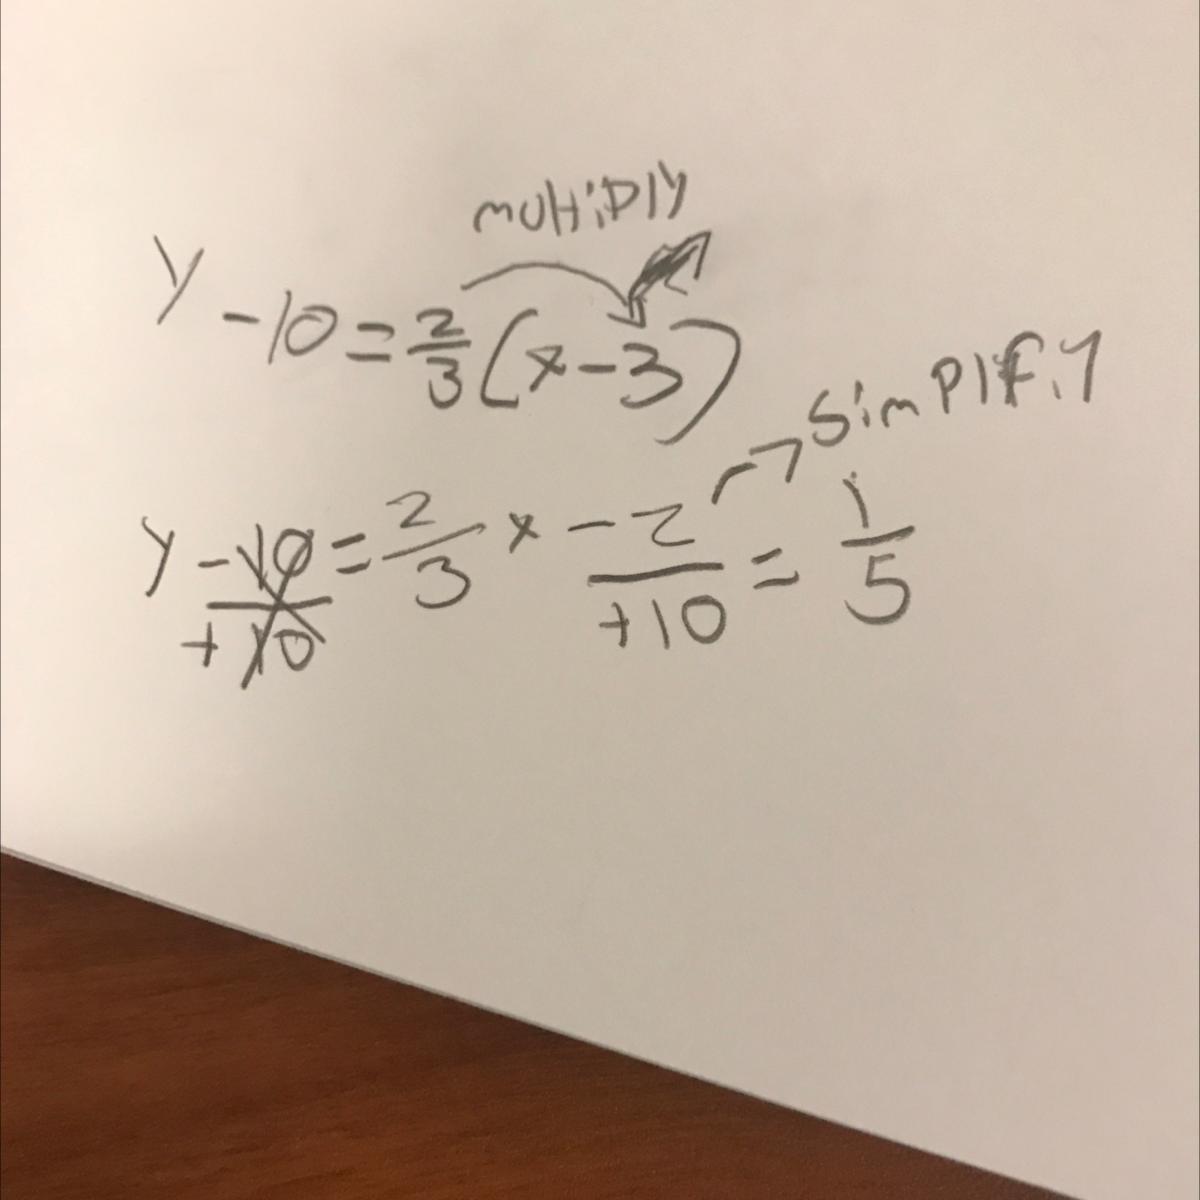 multiply
y - 10 = 2/3 (x - 3)
simplify
y - 10 = 2/3 x - 2 / +10 = 1/5
+ 10